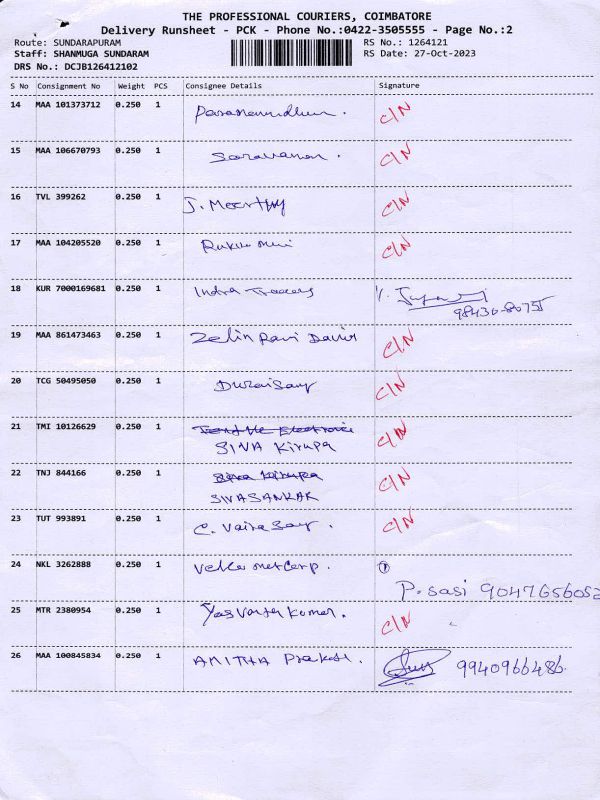 THE PROFESSIONAL COURIERS, COIMBATORE
Delivery Runsheet - PCK - Phone No.:0422-3505555 - Page No.:2
Route: SUNDARAPURAM RS No.: 1264121
Staff: SHANMUGA SUNDARAM RS Date: 27-Oct-2023
DRS No.: DCJB126412102
S No Consignment No Weight PCS Consignee Details Signature
14 MAA 101373712 0.250 1 C/N
15 MAA 106670793 0.250 1 Saravanan. C/N
16 TVL 399262 0.250 1 J. Moorthy C/N
17 MAA 104205520 0.250 1 Rukumani C/N
18 KUR 7000169681 0.250 1 Indra Traders
98430-80755
19 MAA 861473463 0.250 1 Zelin Ravi C/N
20 TCG 50495050 0.250 1 Duraisamy C/N
21 TMI 10126629 0.250 1 C/N
SIVA Kirupa
22 TNJ 844166 0.250 1 Siva Kirupa C/N
SIVASANKAR
23 TUT 993891 0.250 1 C. Vairasamy. C/N
24 NKL 3262888 0.250 1
P. Sasi 9047656052
25 MTR 2380954 0.250 1 Kumar. C/N
26 MAA 100845834 0.250 1 AMITHA Prakash. 9940966486.